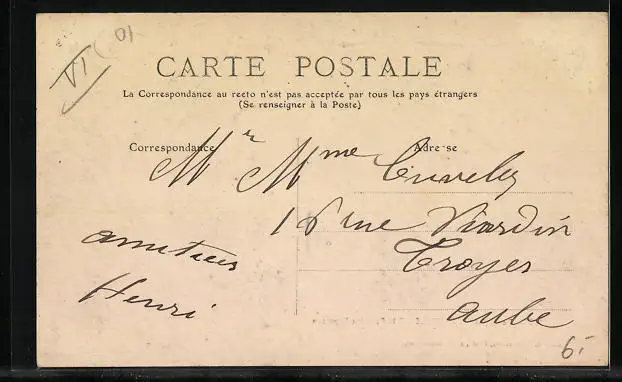 VI ( 01
CARTE POSTALE
La Correspondance au recto n'est pas acceptée par tous les pays étrangers
(Se renseigner à la Poste)
Correspondance
Adresse
Mr Mme Cuveley
18 rue Viardin
Troyes
Aube
amitiés
Henri
6.-